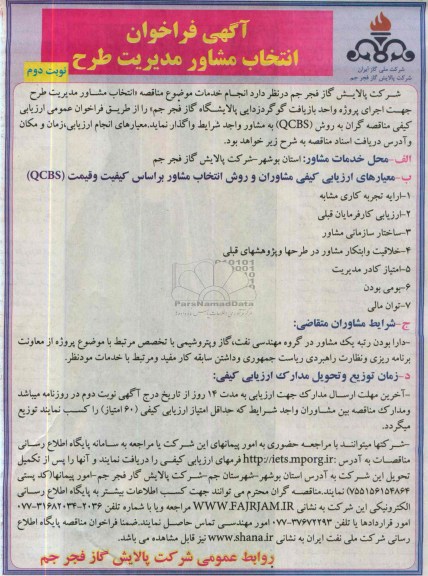 آگهی فراخوان
انتخاب مشاور مدیریت طرح
نوبت دوم
شرکت ملی گاز ایران
شرکت پالایش گاز فجر جم
شرکت پالایش گاز فجر جم درنظر دارد انجام خدمات موضوع مناقصه «انتخاب مشاور مدیریت طرح
جهت اجرای پروژه واحد بازیافت گوگردزدایی پالایشگاه گاز فجر جم» را از طریق فراخوان عمومی ارزیابی
کیفی مناقصه گران به روش (QCBS) به مشاور واجد شرایط واگذار نماید.معیارهای انجام ارزیابی،زمان و مکان
وآدرس دریافت اسناد مناقصه به شرح زیر خواهد بود.
الف-محل خدمات مشاور: استان بوشهر-شرکت پالایش گاز فجر جم
ب-معیارهای ارزیابی کیفی مشاوران و روش انتخاب مشاور براساس کیفیت وقیمت (QCBS)
۱-ارایه تجربه کاری مشابه
۲-ارزیابی کارفرمایان قبلی
۳-ساختار سازمانی مشاور
۴-خلاقیت وابتکار مشاور در طرحها وپژوهشهای قبلی
۵-امتیاز کادر مدیریت
۶-بومی بودن
۷-توان مالی
ParsNamadData
ج-شرایط مشاوران متقاضی:
-دارا بودن رتبه یک مشاور در گروه مهندسی نفت،گاز وپتروشیمی با تخصص مرتبط با موضوع پروژه از معاونت
برنامه ریزی ونظارت راهبردی ریاست جمهوری وداشتن سابقه کار مفید ومرتبط با خدمات مودنظر.
د-زمان توزیع وتحویل مدارک ارزیابی کیفی:
-آخرین مهلت ارسال مدارک جهت ارزیابی به مدت ۱۴ روز از تاریخ درج آگهی نوبت دوم در روزنامه میباشد
ومدارک مناقصه بین مشاوران واجد شرایط که حداقل امتیاز ارزیابی کیفی (۶۰ امتیاز) را کسب نمایند توزیع
میگردد.
-شرکتها میتوانند با مراجعه حضوری به امور پیمانهای این شرکت یا مراجعه به سامانه پایگاه اطلاع رسانی
مناقصات به آدرس :http://iets.mporg.ir فرمهای ارزیابی کیفی را دریافت نمایند و آنها را پس از تکمیل
تحویل این شرکت به آدرس استان بوشهر-شهرستان جم-شرکت پالایش گاز فجر جم-امور پیمانها(کد پستی
۷۵۵۱۵۶۱۵۴۸۶۴) نمایند.مناقصه گران محترم می توانند جهت کسب اطلاعات بیشتر به پایگاه اطلاع رسانی
الکترونیکی این شرکت به نشانی WWW.FAJRJAM.IR مراجعه ویا با شماره تلفن ۲۰۳۶-۰۷۷-۳۱۶۸۲۰۳۴
امور قراردادها یا تلفن ۰۷۷-۳۷۶۷۲۲۹۳ امور مهندسی تماس حاصل نمایند.ضمنا فراخوان مناقصه پایگاه اطلاع
رسانی شرکت ملی نفت ایران به نشانی www.shana.ir نیز قابل مشاهده می باشد.
روابط عمومی شرکت پالایش گاز فجر جم